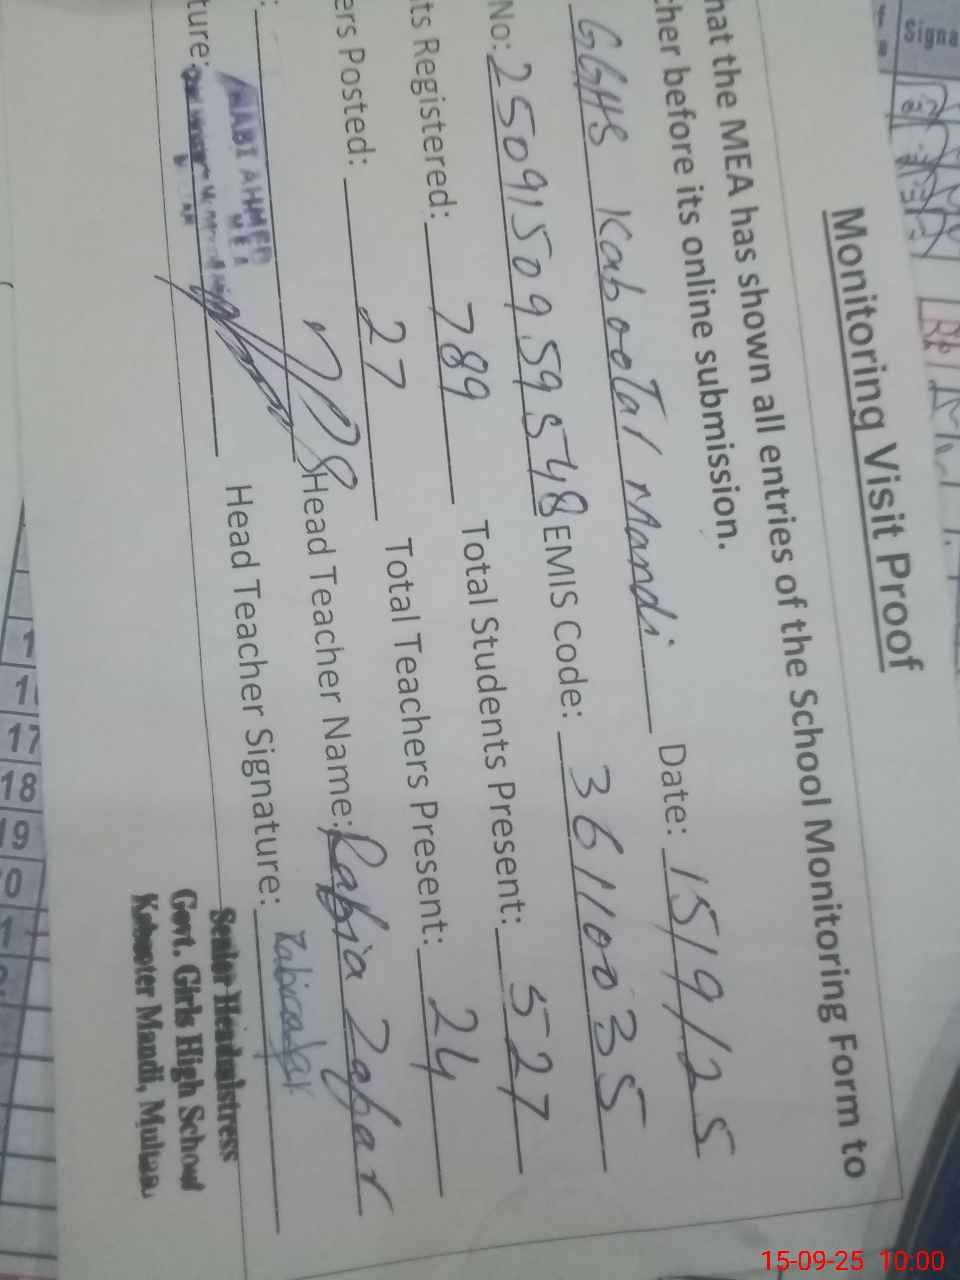 Monitoring Visit Proof
hat the MEA has shown all entries of the School Monitoring Form to
cher before its online submission.
GGHS Kabootar Mandi Date: 15/9/25
No: 2509150959548 EMIS Code: 36110035
ts Registered: 789 Total Students Present: 527
ers Posted: 27 Total Teachers Present: 24
: Head Teacher Name: Rabia Zafar
NABI AHMED
MEA
ture: Head Teacher Signature:
Senior Headmistress
Govt. Girls High School
Kabooter Mandi, Multan.
signa
1
1
17
18
19
0
15-09-25 10:00